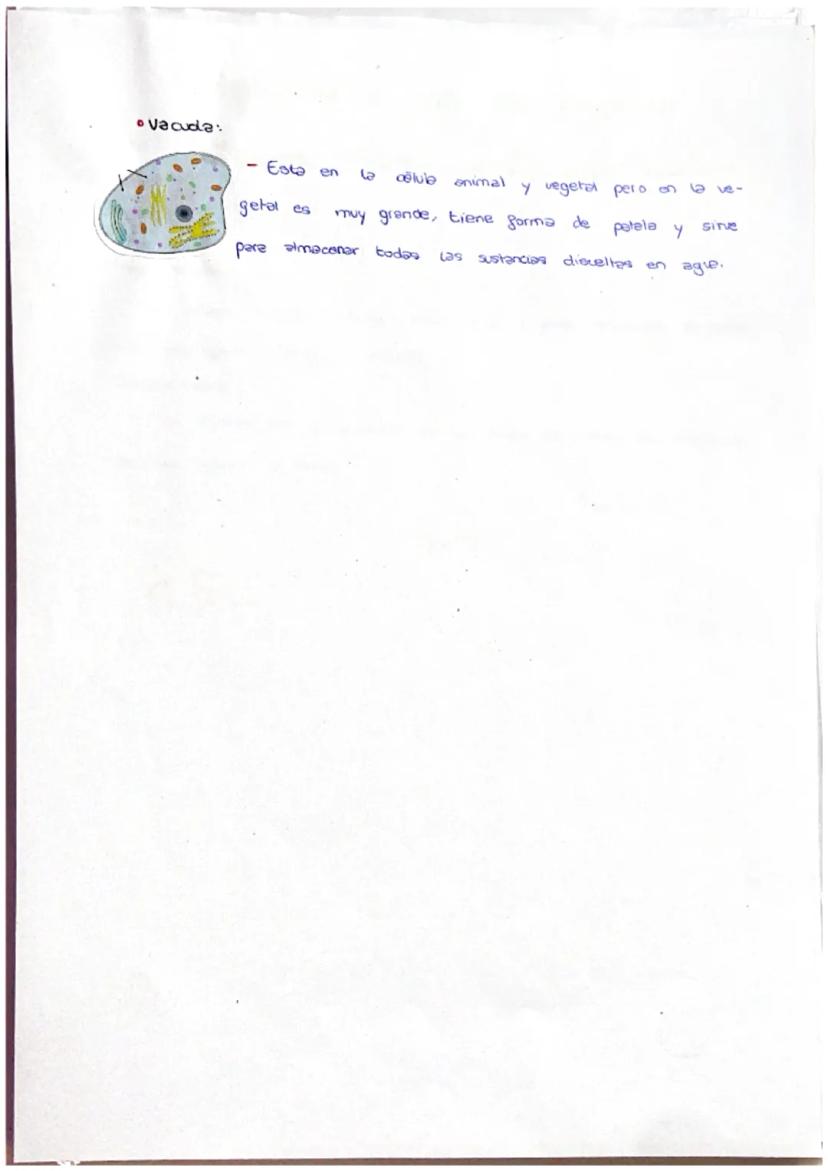 Vacuola:
- Esta en la célula animal y vegetal pero en la ve-
getal es muy grande, tiene forma de patela y sirve
para almacenar todas las sustancias disueltas en agua.